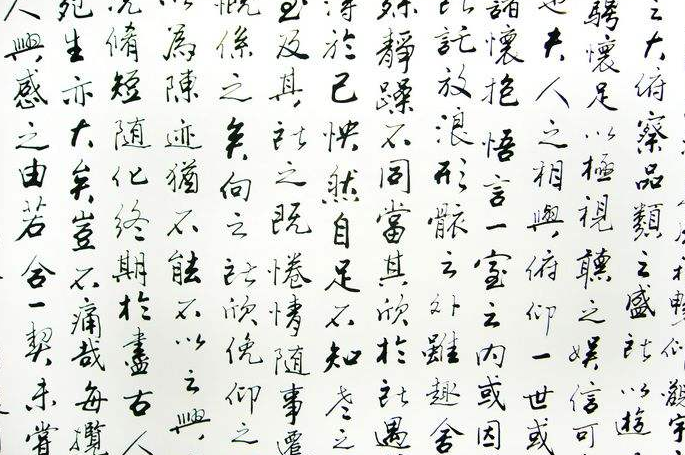 觀宇
之大俯察品類之盛所以遊
騁懷足以極視聽之娛信可
也夫人之相與俯仰一世或
諸懷抱悟言一室之內或因
所託放浪形骸之外雖趣舍
殊靜躁不同當其欣於所遇
得於己怏然自足不知老之
至及其所之既惓情隨事遷
慨係之矣向之所欣俛仰之
以為陳迹猶不能不以之興
況脩短隨化終期於盡古人
死生亦大矣豈不痛哉每攬
人興感之由若合一契未嘗